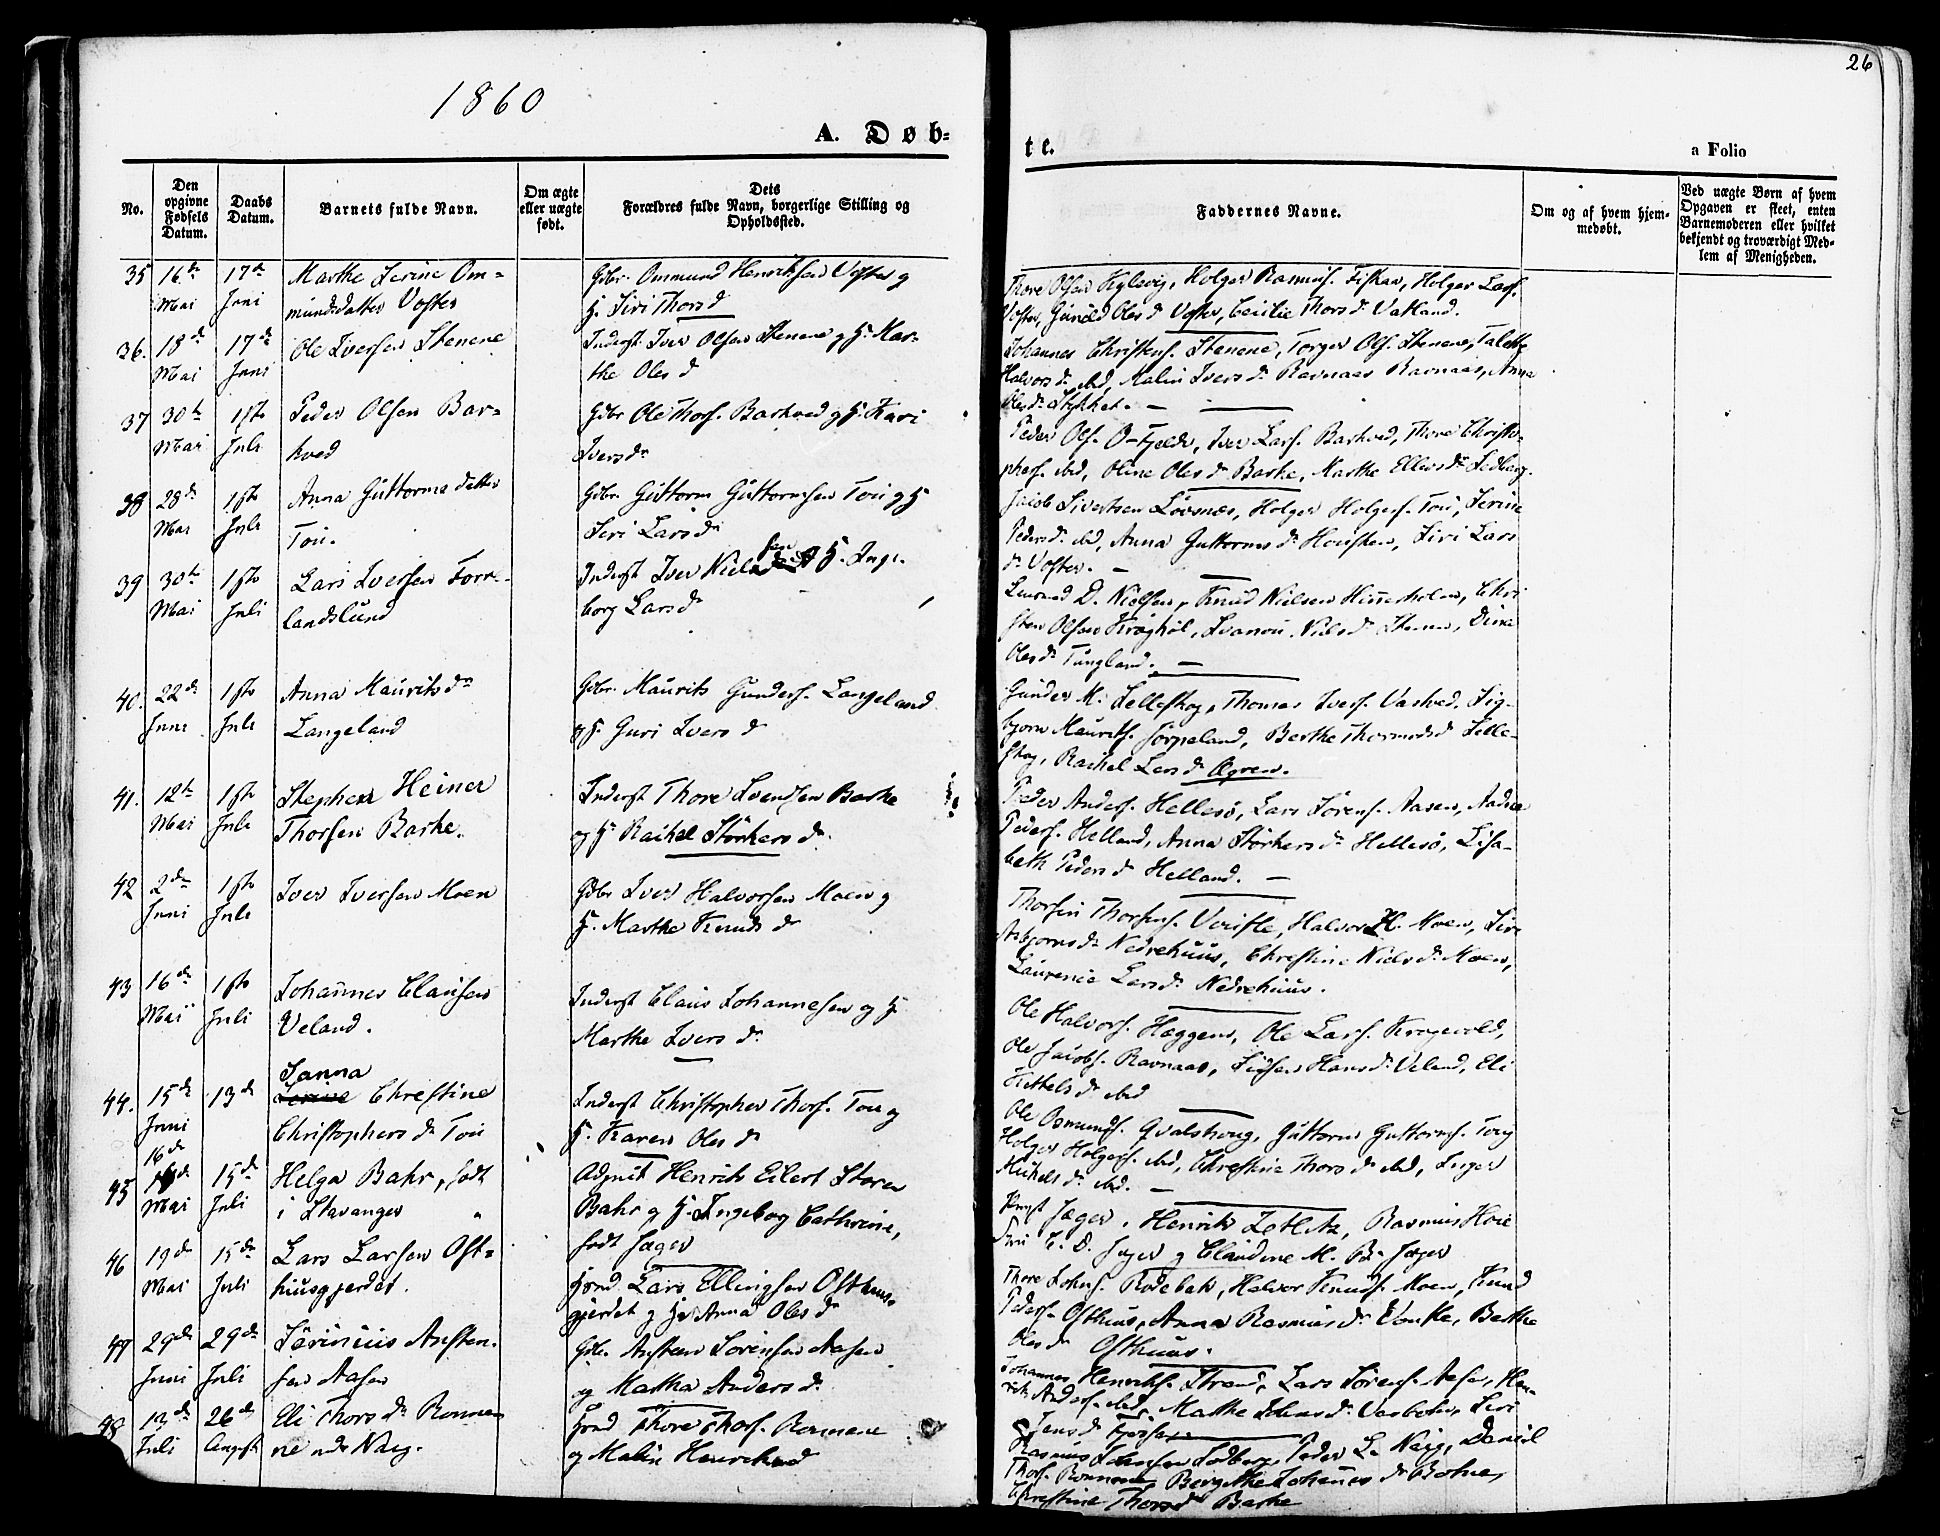 1860
26
A. Døb-
te.
a Folio
No.
Den opgivne Fødsels Datum.
Daabs Datum.
Barnets fulde Navn.
Om ægte eller uægte født.
Dets Forældres fulde Navn, borgerlige Stilling og Opholdssted.
Faddernes Navne.
Om og af hvem hjem-
medøbt.
Ved uægte Børn af hvem
Opgaven er skeet, enten
Barnemoderen eller hvilket
bekjendt og troværdigt Med-
lem af Menigheden.
35 16de Mai 17de Juni
Marthe Serine Om-
mundsdatter Voster
Gdbr. Ommund Henriksen Voster og
H. Siri Thorsd
Thore Olsen Kylevig, Holger Rasmus. Fiskaa, Holger Lars.
Voster, Gunild Olesd Voster, Cecilie Thorsdr Vatland.
36. 18de Mai 17de Juni
Ole Iversen Stenene
Inderst Iver Olsen Stenene og H. Mar-
the Olesd
Johannes Christens. Stenene, Torger Ols. Stenene, Talette
Halvorsdr ibid, Malin Iversdr Ravnaas, Anna
Olesdr Stykket.
37 30te Mai 1ste Juli
Peder Olsen Bar-
kved
Gdbr Ole Thors. Barkved og H. Kari
Iversdr
Peder Ols. Ø-Fjelde, Iver Lars. Barkved, Thore Christo-
phers. ibid, Oline Olesdr Barke, Marthe Ellersdr Sedberg.
38 28de Mai 1ste Juli
Anna Guttorms datter
Tou.
Gdbr. Guttorm Guttormsen Tou og H
Siri Larsdr
Jacob Sivertsen Løvsnæs, Holger Holgers. Tou, Serine
Pedersdr ibid, Anna Guttormsdr Housken, Siri Lars
dr Voster.
39 30te Mai 1ste Juli
Lars Iversen Torre-
landslund
Inderst Iver Nielssen og H. Inge-
borg Larsdr
Lensmd D. Nielsen, Knud Nielsen Hinnerholm, Chri
sten Olsen Kroghøl, Nielsdr Stenene, Dina
Olesdr Tungland.
40. 22de Juni 1ste Juli
Anna Mauritsdr
Langeland
Gdbr. Maurits Gunders. Langeland
og H. Guri Iversd
Gunder M. Selleskog, Thomas Ivers. Vastved, Sig-
bjørn Maurits. Jørpeland, Berthe Thormodsd Selle-
skog, Rachel Larsdr Øgreen.
41. 12te Mai 1ste Juli
Stephen Heiner
Thorsen Barke.
Inderst Thore Svendsen Barke
og H. Rachel Størkersdr
Peder Anders. Hellesø, Lars Sørens. Aasen, Andrea
Peders. Helland, Anna Størkersdr Hellesø, Lisa-
beth Pedersd Helland.
42 2den Juni 1ste Juli
Iver Iversen Moen
Gdbr Iver Halvorsen Moen og
H. Marthe Knudsdr
Thorsen Thorsens. Veriste, Halvor H. Moen, Siri
Asbjørnsdr Nedrehuus, Christine Nielsdr Moen,
Laurenie Larsdr Nedrehuus.
43 16de Mai 1ste Juli
Johannes Clausen
Veland.
Inderst Claus Johannesen og H
Marthe Iversdr
Ole Halvors. Heggem, Ole Lars. Krogevold,
Ole Jacobs. Ravnaas, Sidsel Hansdr Veland, Eli
Kittelsdr ibid
44. 15de Juni 13de
Janna
Serine Christine
Christophersdr Tou
Inderst Christopher Thors. Tou og
H. Karen Olesdr
Ole Osmunds. Qvalshoug, Guttorm Guttorms. Tou,
Holger Holgers. ibid, Christine Thorsdr ibid, Inger
Mikelsdr ibid.
45 16de Mai 15de Juli
Helga Bahr, født
i Stavanger
Adjunkt Henrik Eilert Støren
Bahr og H. Ingeborg Cathrine,
født Jæger
Jæger, Henrik Zetlitz, Rasmus Hoie
Fru C. D. Jæger og Claudine M. B. Jæger
46 19de Mai 15de Juli
Lars Larsen Ost-
huusgjerdet.
Hmd. Lars Ellingsen Osthuus-
gjerdet og H. Anna Olesdr
Thore Johns. Rodebak, Halvor Knuds. Moen, Knud
Peders. Osthuus, Anna Rasmusdr Vonke, Berthe
Olesdr Osthuus.
47 29de Juni 29de Juli
Sørinius Austen-
sen Aasen
Gdbr. Austen Sørensen Aasen
og Martha Andersdr
Johannes Henriks. Strand, Lars Sørens. Aasen, Hen-
rik Anders. ibid, Malthe Johnsdr Varboken, Siri
Jensdr
48 13de Juli 26de August
Eli Thorsdr Ronne-
ne nds Nag.
Hmd Thore Thors. Ronnene
og Malin Henriksd
Rasmus Johnsen Sedberg, Peder L. Nag, Daniel
Thors. Ronnene, Bergithe Johannesdr Botne,
Christine Thorsdr Barke